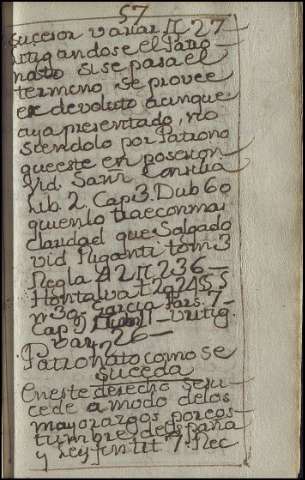 57
sucesor variar n 27
litigandose el Patro-
nato si se pasa el
termino se provee
ex devoluto aunque
aya presentado, no
siendolo por Patrono
que este en posesion
Vid. Sanz Consilia
lib. 2. Cap 3. Dub 60
quien lo trae con mas
claridad que Salgado
vid Piganti tom 3
Regla 42 n 236
n 30 Garcia Pars. 7
Cap
var 26
Patronato como se
suceda
En este derecho se su-
cede a modo de los
mayorazgos por cos-
tumbre de España
y 7. Nec